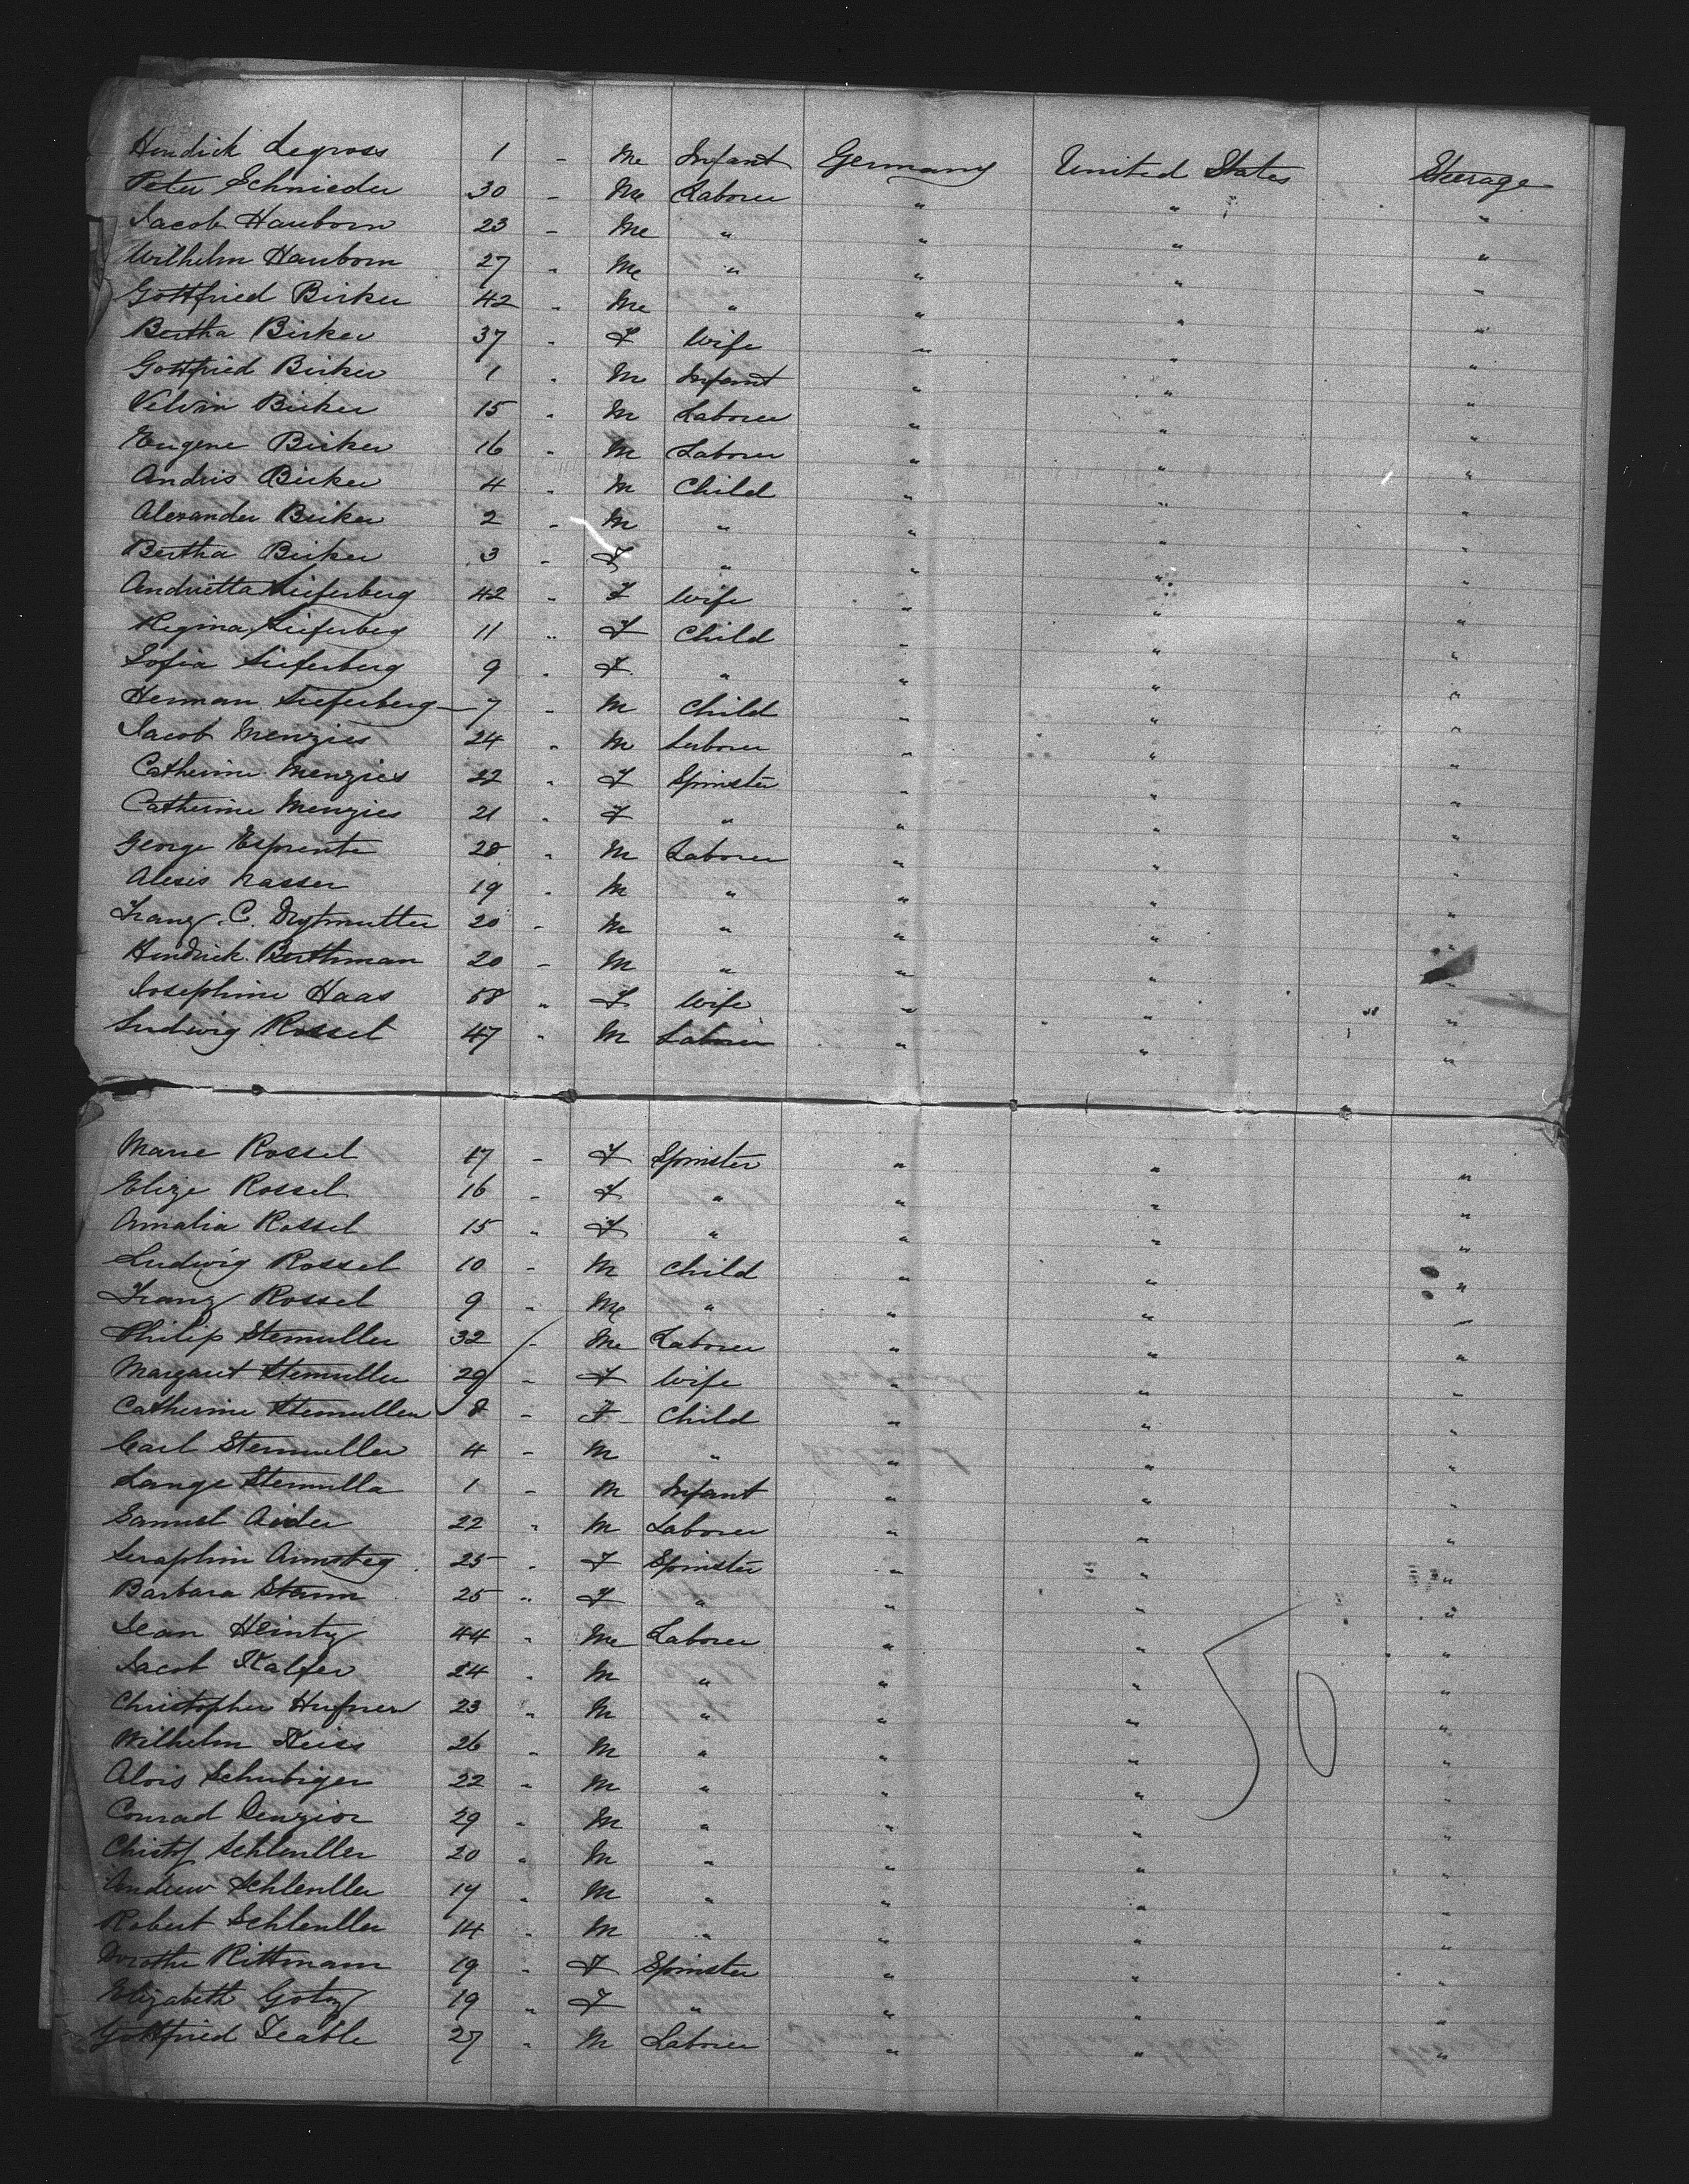 Hendick Legross 1 - Me Infant Germany United States Steerage
Peter Schnieder 30 - Me Laborer " " "
Jacob Hauborn 23 - Me " " " "
Wilhelm Hauborn 27 " Me " " " "
Gottfried Birker 42 " Me " " " "
Bertha Birker 37 " F Wife " " "
Gottfried Birker 1 " M Infant " " "
Birker 15 " M Laborer " " "
Eugene Birker 16 " M Laborer " " "
Andris Birker 4 " M Child " " "
Alexander Birker 2 - M " " " "
Bertha Birker 3 - F " " " "
Andrietta Lieferberg 42 " F Wife " " "
Regina Lieferberg 11 " F Child " " "
Sofia Lieferberg 9 " F " " " "
Herman Lieferberg 7 - M Child " " "
Jacob Menzies 24 " M Laborer " " "
Catherine Menzies 22 " F Spinster " " "
Catherine Menzies 21 " F " " " "
George 28 " M Laborer " " "
Alexis Nasser 19 " M " " " "
Franz C. 20 - M " " " "
Hendrick Berthman 20 - M " " " "
Josephine Haas 58 " F Wife " " "
Ludwig Rossel 47 " M Laborer " " "
Marie Rossel 17 - F Spinster " " "
Elize Rossel 16 - F " " " "
Amalia Rossel 15 " F " " " "
Ludwig Rossel 10 - M Child " " "
Franz Rossel 9 " Me " " " "
Philip Stemuller 32 - Me Laborer " " "
Margaret Stemuller 29 - F Wife " " "
Catherine Stemuller 8 - F Child " " "
Carl Stemuller 4 - M " " " "
Lange Stemulla 1 - M Infant " " "
Samuel Aider 22 " M Laborer " " "
Seraphin 25 " F Spinster " " "
Barbara Stamm 25 " F " " " "
Jean Heintz 44 " Me Laborer " " "
Jacob Kalfer 24 " M " " " "
Christopher Hufner 23 " M " " " "
Wilhelm 26 " M " " " "
Alois Schubiger 22 " M " " " "
Conrad Denzior 29 " M " " " "
Christof Schlenller 20 " M " " " "
Andrew Schlenller 17 " M " " " "
Robert Schlenller 14 " M " " " "
Dorothe Rittmann 19 " F Spinster " " "
Elizabeth Gotz 19 " F " " " "
Gottfried 27 " M Laborer " " "
50